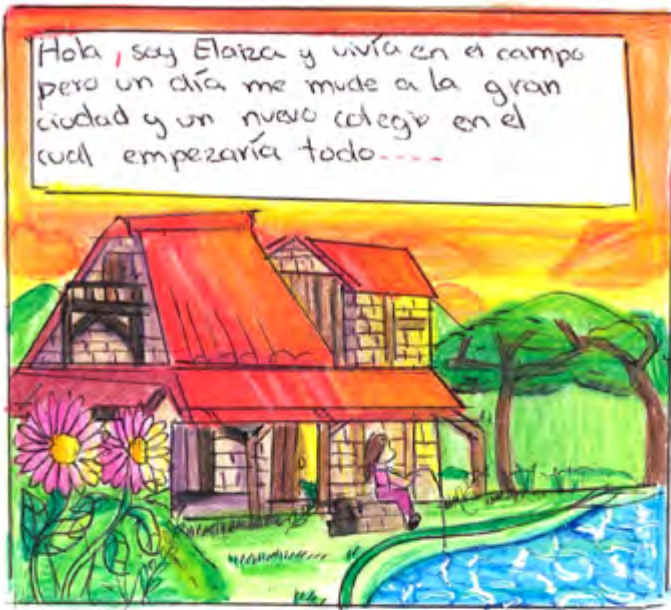 Hola, soy Elaiza y vivía en el campo
pero un día me mude a la gran
ciudad y un nuevo colegio en el
cual empezaría todo....